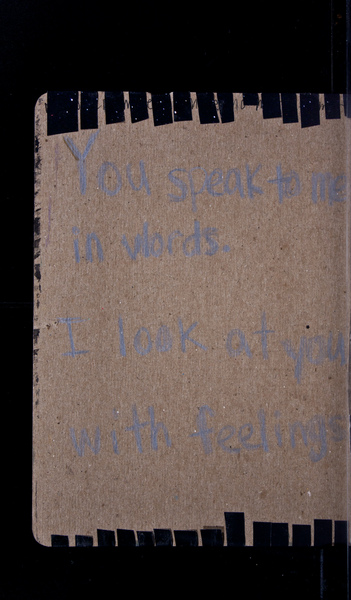 You speak to me
in words.
I look at you
with feelings